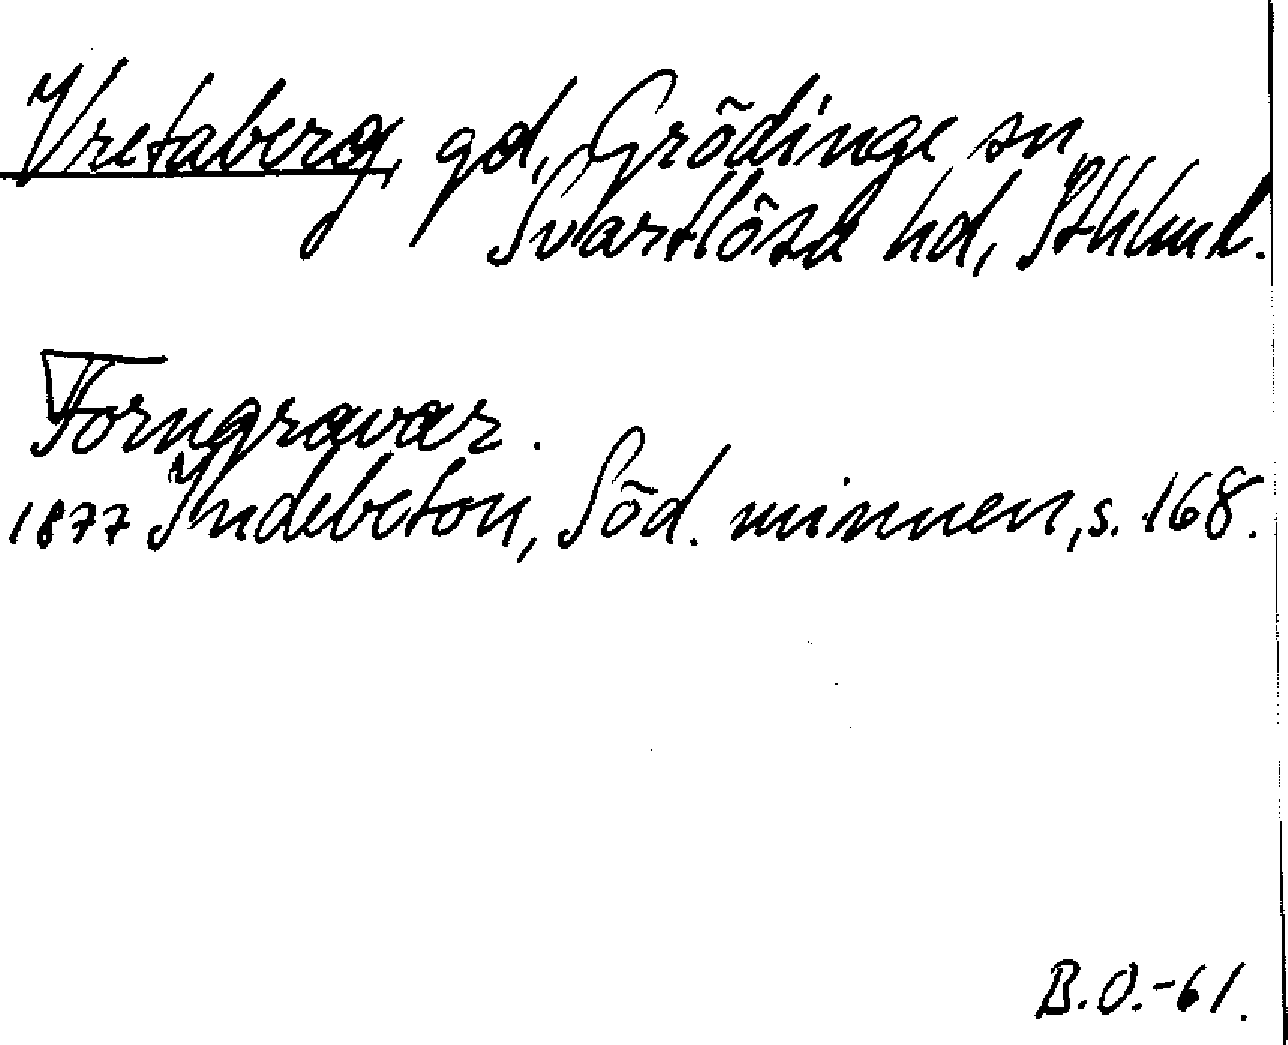 Vretaberg, gd, Grödinge sn
Svartlösa hd, Sthlm l.
Forngravar.
1877 Indebetou, Söd. minnen, s. 168.
B.O.-61.